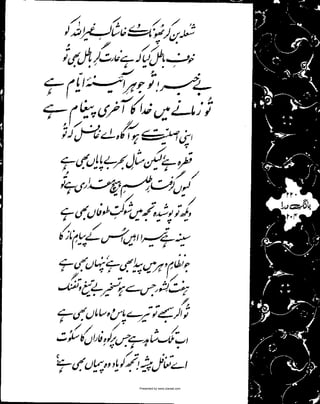 شعلہ بن کر پھونک دے خاشاکِ غیر اللہ کو
خوفِ باطل کیا کہ ہے غارت گرِ باطل بھی تو
بے خبر! تو جوہرِ آئینۂ ایام ہے
تو زمانے میں خدا کا آخری پیغام ہے
اپنی اصلیت سے ہو آگاہ اے غافل کہ تو
قطرہ ہے لیکن مثالِ بحرِ بے پایاں بھی ہے
کیوں گرفتارِ طلسمِ ہیچ مقداری ہے تو
دیکھ تو پوشیدہ تجھ میں شوکتِ طوفاں بھی ہے
سینہ ہے تیرا امیں اس کے پیامِ ناز کا
جو نظامِ دہر میں پیدا بھی ہے پنہاں بھی ہے
ہفت کشور جس سے ہو تسخیر بے تیغ و تفنگ
تو اگر سمجھے تو تیرے پاس وہ ساماں بھی ہے
اب تلک شاہد ہے جس پر کوہِ فاراں کا سکوت
اے تغافل پیشہ! تجھ کو یاد وہ پیماں بھی ہے
بانگِ درا
Presented by www.ziaraat.com